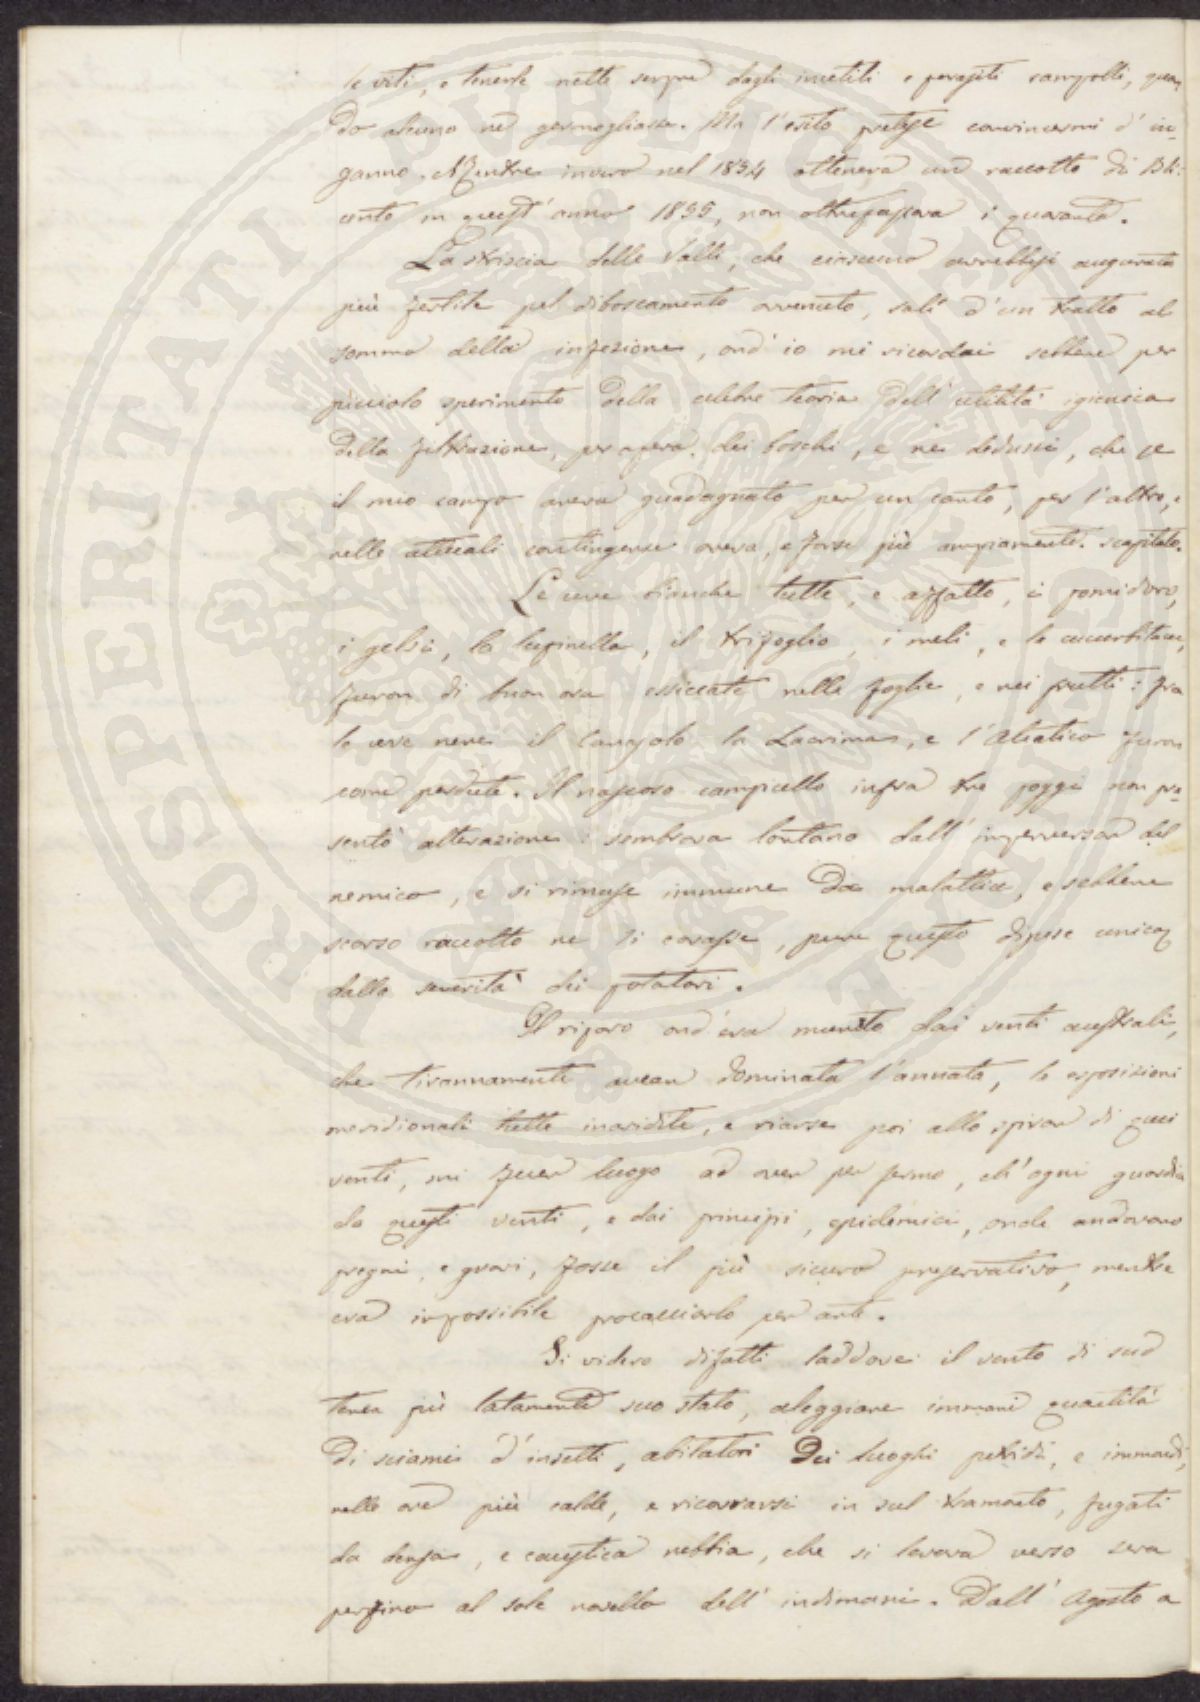 le viti, e tenerle nette sempre dagli inutili e parasiti rampolli, quan
do alcuno ne germogliasse. Ma l'esito protese convincermi d'in
ganno. Mentre invero nel 1854 otteneva un raccolto di Bli:
cento in quest'anno 1855, non oltrepassava i quaranta.
La striscia delle Valli, che ciascuno avrebbesi augurata
più fertile pel diboscamento avvenuto, salì d'un tratto al
sommo della infezione, ond'io mi ricordai sebbene per
picciolo sperimento della celebre teoria dell'utilità igienica
della filtrazione, per opera dei boschi, e ne dedussi, che se
il mio campo aveva guadagnato per un canto, per l'altro, e
nelle attuali contingenze aveva, e forse più ampiamente scapitato.
Le uve bianche tutte, e affatto, i pomidoro,
i gelsi, la lupinella, il trifoglio, i meli, e le cucurbitacee,
furon di buon ora essiccate nelle foglie, e nei frutti: fra
le uve nere il Canajolo la Lacrima, e l'Aleatico furon
come perdute. Il nascoso campicello infra tre poggi non pre
sentò alterazione: sembrava lontano dall'imperversar del
nemico, e si rimase immune da malattia, e sebbene
scarso raccolto ne si cavasse, pure questo dipese unicam
dalla severità dei potatori.
Il riparo ond'era munito dai venti australi,
che tirannamente avean dominata l'annata, le esposizioni
meridionali tutte inaridite, e riarse poi allo spirar di quei
venti, mi fecer luogo ad aver per fermo, ch'ogni guardia
da questi venti, e dai principii, epidemici, onde andavano
pregni, e gravi, fosse il più sicuro preservativo, mentre
era impossibile procacciarlo per arte.
Si videro difatti laddove il vento di sud
tenea più latamente suo stato, aleggiare immane quantità
di sciami d'insetti, abitatori dei luoghi putridi, e immondi,
nelle ore più calde, e ricovrarsi in sul tramonto, fugati
da densa, e caustica nebbia, che si levava verso sera
perfino al sole novello dell'indimani. Dall'Agosto a